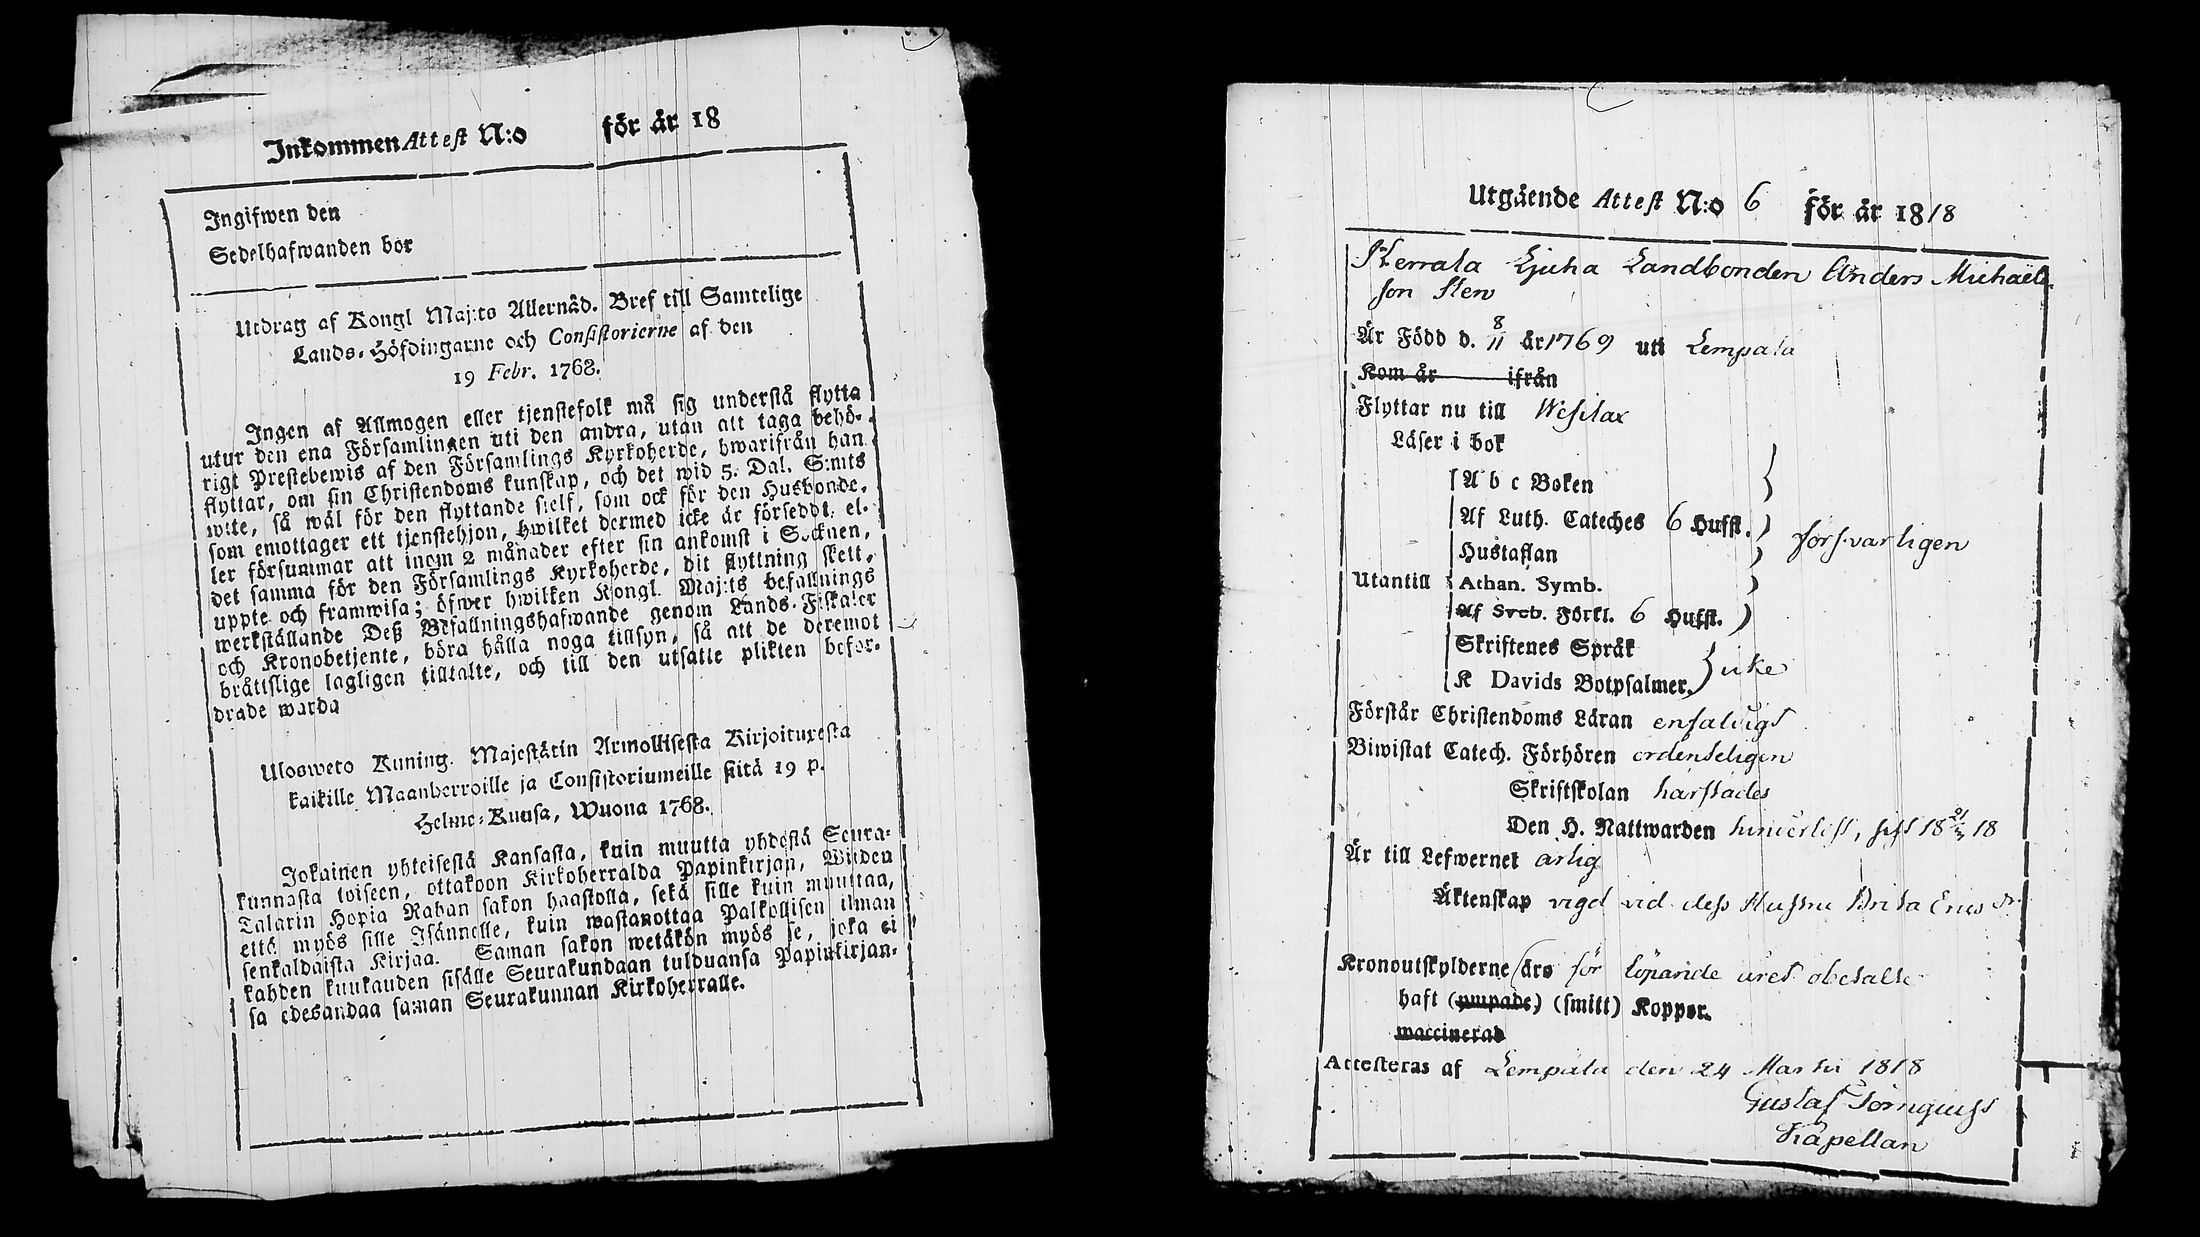 Inkommen Attest N:o för år 18
Ingifwen den
Sedelhafwanden bor
Utdrag af Kongl Maj:ts Allernåd. Bref till Samtelige
Lands-Höfdingarne och Consistorierne af den
19 Febr. 1768.
Ingen af Allmogen eller tjenstefolk må sig understå flytta
utur den ena Församlingen uti den andra, utan att taga behö-
rigt Prestebewis af den Församlings Kyrkoherde, hwarifrån han
flyttar, om sin Christendoms kunskap, och det wid 5. Dal. S:mts
wite, så wäl för den flyttande sielf, som ock för den Husbonde,
som emottager ett tjenstehjon, hwilket dermed icke är förseddt, el-
ler försummar att inom 2 månader efter sin ankomst i Socknen,
det samma för den Församlings Kyrkoherde, dit flyttning skett,
uppte och framwisa; öfwer hwilken Kongl. Maj:ts befallnings
werkställande Deß Befallningshafwande genom Lands-Fiskaler
och Kronobetjente, böra hålla noga tillsyn, så att de deremot
bråttslige lagligen tilltalte, och till den utsatte plikten befor-
drade warda
Ulosweto Kuning. Majestätin Armollisesta Kirjoituxesta
kaikille Maanherroille ja Consistoriumeille siitä 19 p.
Helme-Kuusa, Wuona 1768.
Jokainen yhteisestä Kansasta, kuin muutta yhdestä Seura-
kunnasta toiseen, ottakoon Kirkoherralda Papinkirjan, Wiiden
Talarin Hopia Rahan sakon haastolla, sekä sille kuin muuttaa,
että myös sille Isännelle, kuin wastanottaa Palkollisen ilman
senkaldaista Kirjaa. Saman sakon wetäkön myös se, joka ei
kahden kuukauden sisälle Seurakundaan tulduansa Papinkirjan-
sa edesandaa saman Seurakunnan Kirkoherralle.
Utgående Attest N:o 6 för år 1818
Herrala Ljuha Landbonden Anders Michaels
son Sten
Är Född d. 8/11 år 1769 uti Lempala
Kom år ifrån
Flyttar nu till Wesilax
Läser i bok
A b c Boken
Af Luth. Cateches 6 Hufst.
Hustaflan
försvarligen
Utantill Athan. Symb.
Af Sveb. Förkl. 6 Hufst.
Skriftenes Språk
K Davids Botpsalmer. icke
Förstår Christendoms Läran enfaldigt
Biwistat Catech. Förhören ordenteligen
Skriftskolan härstädes
Den H. Nattwarden hinderlöst, sist 18 21/3 18
Är till Lefwernet ärlig
Äktenskap vigd vid dess Hustru Brita Erics dr
Kronoutskylderne äro för löpande året obetalte
haft (ympade,) (smitt) Koppor.
waccinerad
Attesteras af Lempälä den 24 Martii 1818
Gustaf Törnqvist
Kapellan